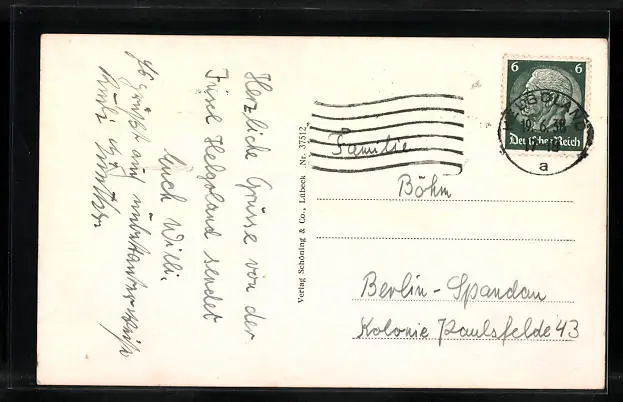 Herzliche Grüsse von der
Insel Helgoland sendet
Euch Willi.
Es grüßt auf unbekannter Weise
Verlag Schöning & Co., Lübeck Nr. 37512
6 6
Deutsches Reich
HELGOLAND
a
Familie
Böhm
Berlin-Spandau
Kolonie Paulsfelde 43